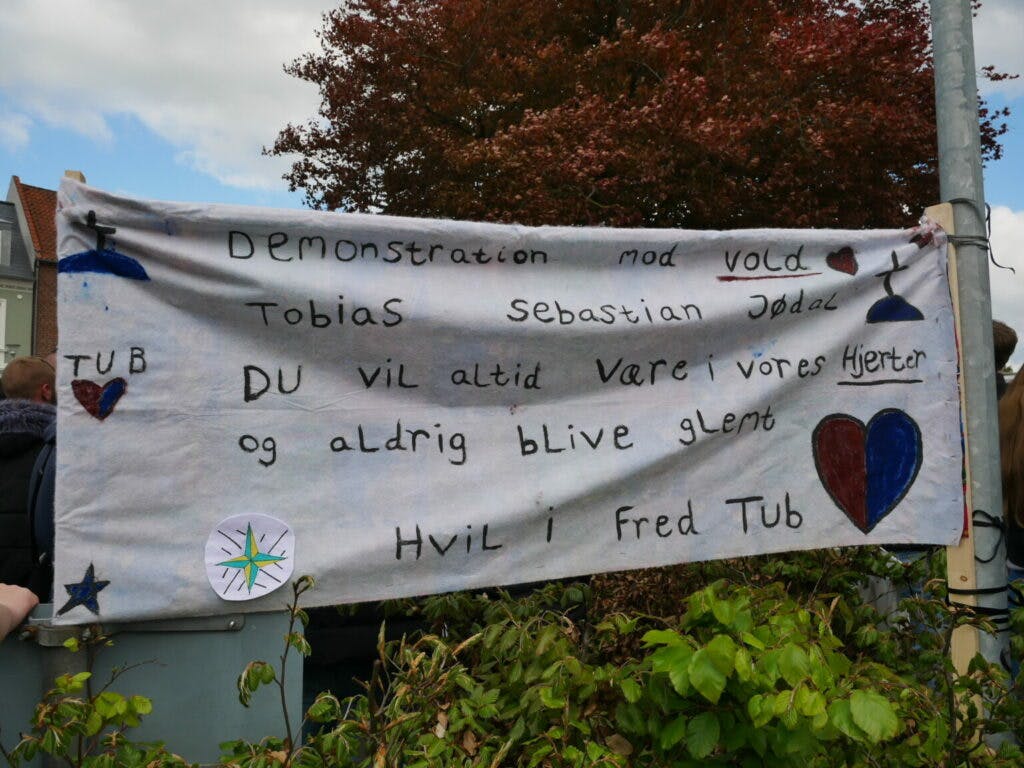 Demonstration mod vold
Tobias Sebastian Jødal
TUB
Du vil altid være i vores Hjerter
og aldrig blive glemt
Hvil i Fred Tub